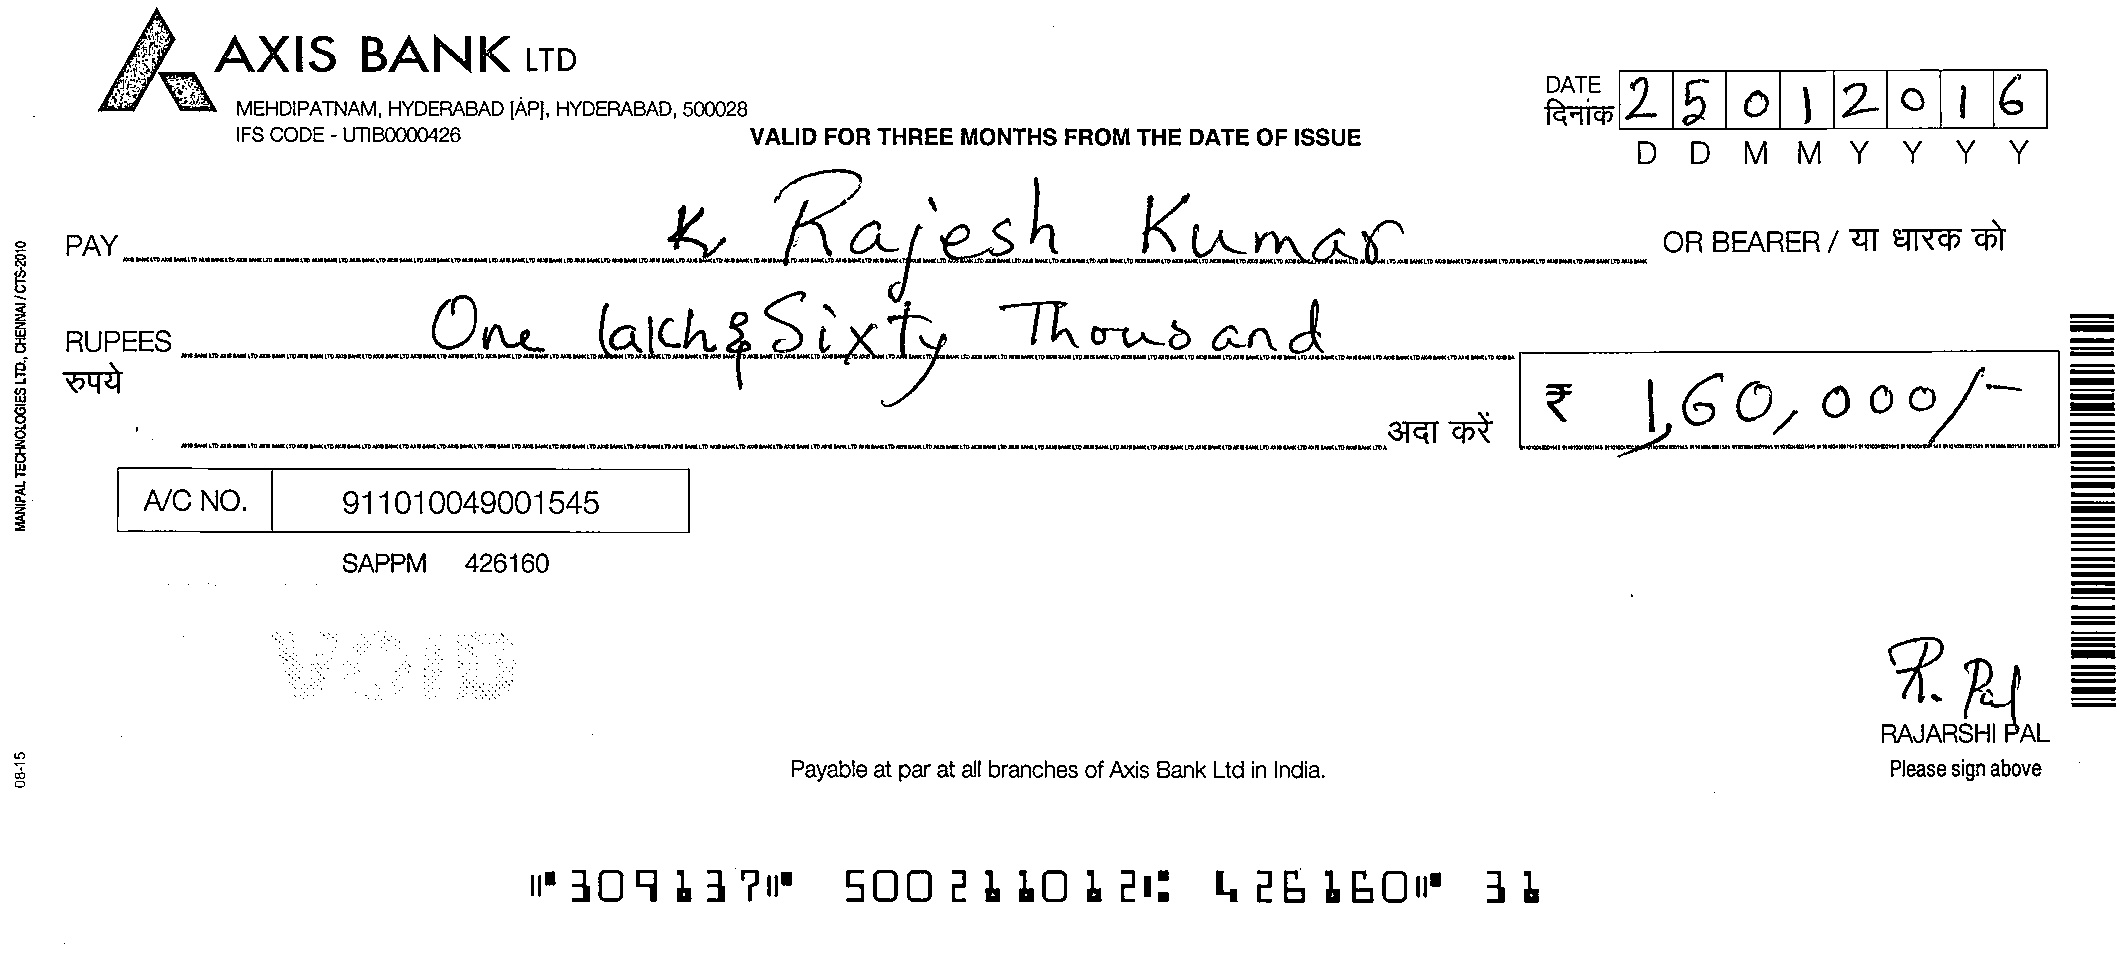 AXIS BANK LTD
MEHDIPATNAM, HYDERABAD [AP], HYDERABAD, 500028
IFS CODE - UTIB0000426
VALID FOR THREE MONTHS FROM THE DATE OF ISSUE
DATE 25012016
दिनांक
D D M M Y Y Y Y
PAY K Rajesh Kumar OR BEARER / या धारक को
RUPEES One lakh & Sixty Thousand
रुपये
अदा करें ₹ 1,60,000/-
A/C NO. 911010049001545
SAPPM 426160
VOID
R. Pal
RAJARSHI PAL
Please sign above
Payable at par at all branches of Axis Bank Ltd in India.
⑈309137⑈ 500211012⑆ 426160⑈ 31
MANIPAL TECHNOLOGIES LTD., CHENNAI / CTS-2010
08-15